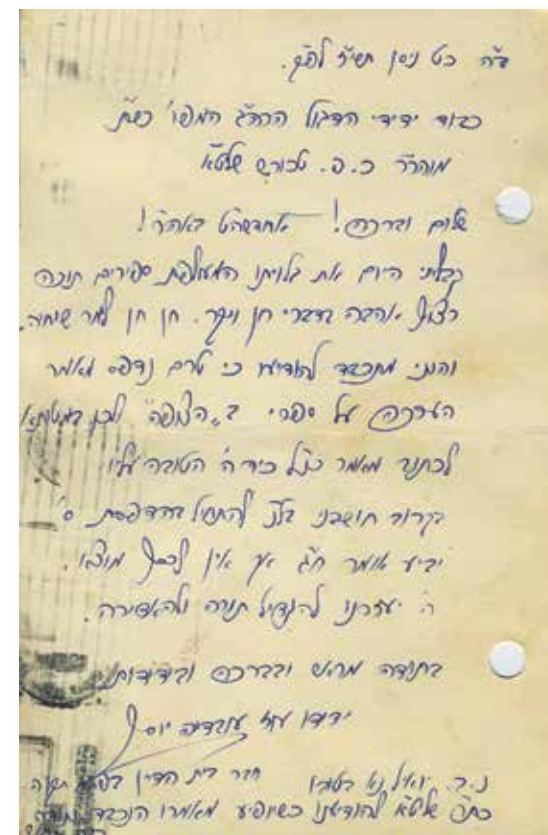 ב"ה כט ניסן תשי"ז לפ"ק.
כבוד ידידי הדגול הרה"ג המפו' כש"ת
מוהר"ר כ.פ. טכורש שליט"א
שלום וברכה! אחדשה"ט באה"ר!
קבלתי היום את גלויתו המעולפת ספירים תוכה
רצוף אהבה בדברי חן ויקר. חן חן למר שיחיה.
והנני מתכבד להודיעו כי טרם נדפס מאמר
הערכה על ספרי ב"הצופה" ולכן במטותא
לכתוב מאמר כנ"ל כיד ה' הטובה עליו
בקרוב חושבני בל"נ להתחיל בהדפסת ס'
יביע אומר ח"ג אך אין לכסף מוצא.
ה' יעזרנו להגדיל תורה ולהאדירה.
בתודה מראש ובברכה ובידידות
ידידו עוז עובדיה יוסף
חבר בית הדין
נ.ב. יואיל נא
כת"ר שליט"א להודיענו כשיופיע מאמרו הנכבד